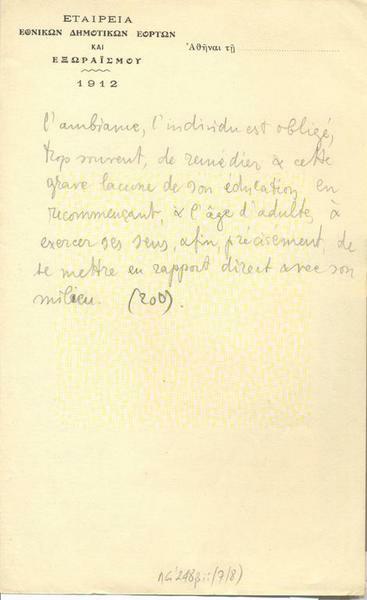 ΕΤΑΙΡΕΙΑ
ΕΘΝΙΚΩΝ ΔΗΜΟΤΙΚΩΝ ΕΟΡΤΩΝ
ΚΑΙ
ΕΞΩΡΑΪΣΜΟΥ
1912
Ἀθῆναι τῇ
l'ambiance, l'individu est obligé,
trop souvent, de remédier à cette
grave lacune de son éducation en
recommençant, à l'âge d'adulte, à
exercer ses sens, afin, précisément, de
se mettre en rapport direct avec son
milieu. (200).
(7/8)